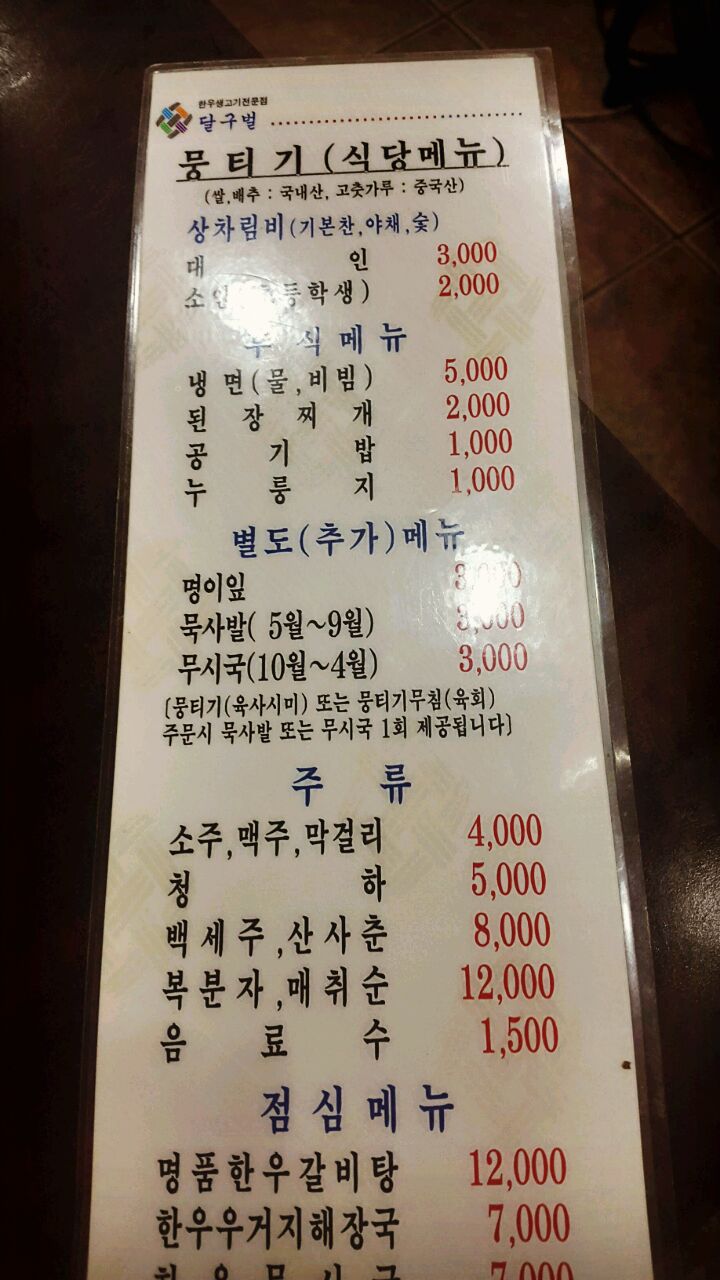 한우생고기전문점
달구벌
뭉티기(식당메뉴)
(쌀,배추 : 국내산, 고춧가루 : 중국산)
상차림비(기본찬,야채,숯)
대 인 3,000
소인 등학생) 2,000
식메뉴
냉면(물,비빔) 5,000
된장찌개 2,000
공기밥 1,000
누룽지 1,000
별도(추가)메뉴
명이잎
묵사발( 5월~9월) 3,000
무시국(10월~4월) 3,000
[뭉티기(육사시미) 또는 뭉티기무침(육회)
주문시 묵사발 또는 무시국 1회 제공됩니다]
주 류
소주,맥주,막걸리 4,000
청 하 5,000
백세주,산사춘 8,000
복분자,매취순 12,000
음 료 수 1,500
점심메뉴
명품한우갈비탕 12,000
한우우거지해장국 7,000
7,000